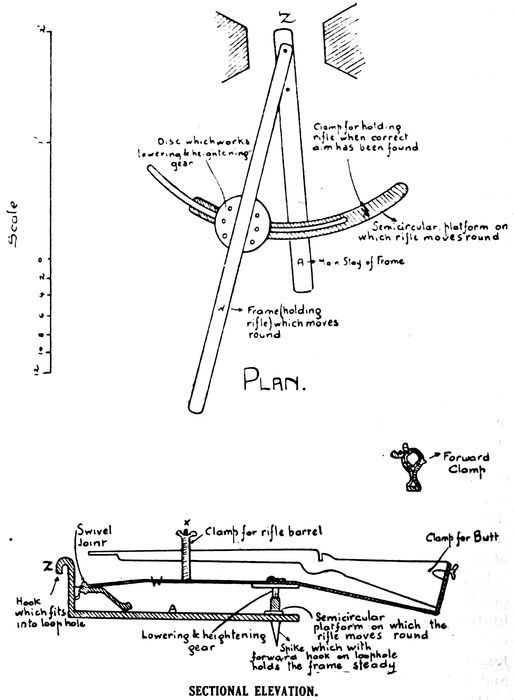 Z
2'
1'
0
2
4
6
8
10
12
Scale
Disc which works
lowering & heightening
gear
Clamp for holding
rifle when correct
aim has been found
Semicircular platform on
which rifle moves round
A → Main Stay of Frame
X → Frame (holding
rifle) which moves
round
PLAN.
Forward
Clamp
Swivel
Joint
X
Clamp for rifle barrel
Clamp for Butt
Z
W
A
Hook
which fits
into loophole
Lowering & heightening
gear
Semicircular
platform on which the
rifle moves round
Spike which with
forward hook on loophole
holds the frame steady
SECTIONAL ELEVATION.